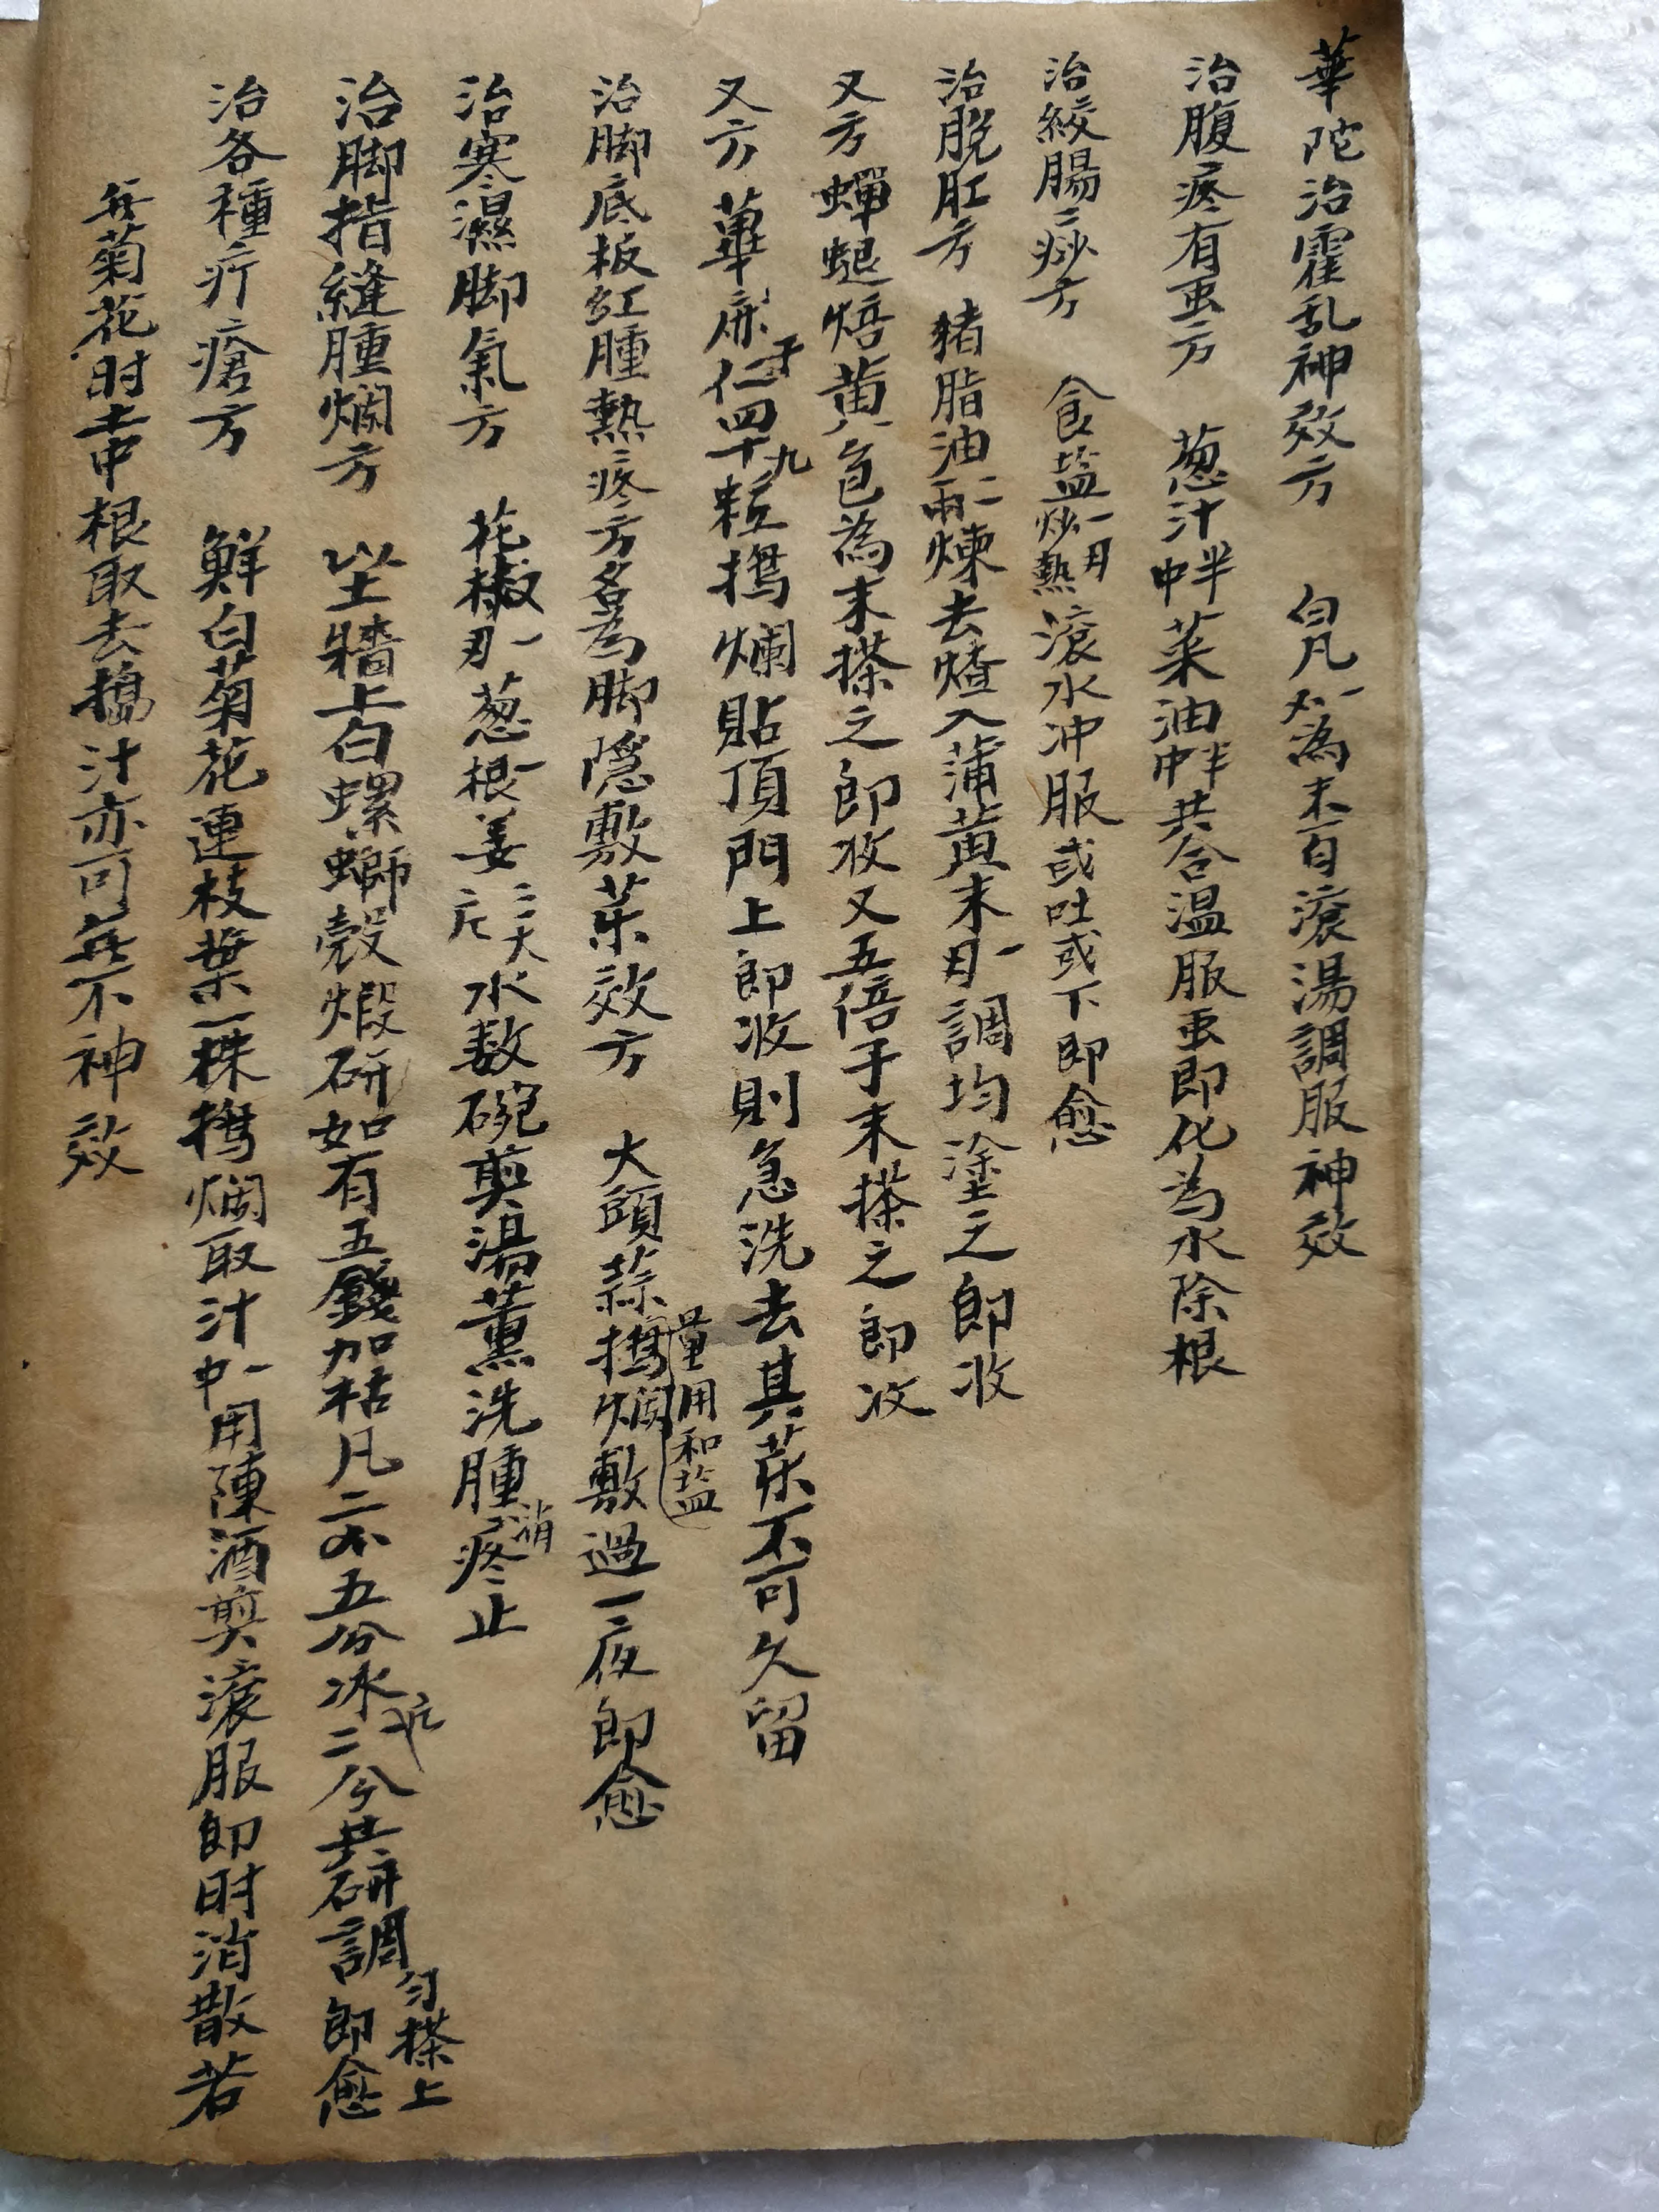 華陀治霍乱神效方 白凡一为末百滚湯調服神效
治腹疼有虫方 葱汁半中菜油半中共合温服虫即化為水除根
治絞腸痧方 食盐一炒熱滚水冲服或吐或下即愈
治脱肛方 猪脂油二兩煉去渣入蒲黄末一調均塗之即收
又方蟬蜕焙黄色為末搽之即收又五倍子末搽之即收
又方 蓖麻子仁四十九粒搗爛貼頂門上即收則急洗去其药不可久留
治脚底板红腫熱疼方名為脚隐敷药效方 大頭蒜搗烂敷過一夜即愈
量用和盐
治寒濕脚氣方 花椒一葱根一姜三大片水数碗煎湯薰洗腫消疼止
治脚指縫腫烂方 以土墻上白螺螄殼煅研如有五錢加枯凡二个五分冰片二分共研調匀搽上即愈
治各種疔瘡方 鮮白菊花連枝葉一株搗烂取汁一中用陳酒煎滚服即时消散若
無菊花时土中根取去搗汁亦可無不神效